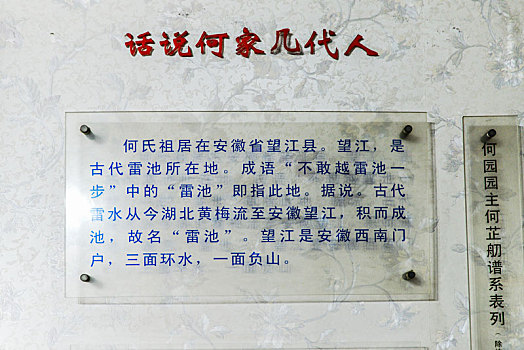 话说何家几代人
何氏祖居在安徽省望江县。望江，是
古代雷池所在地。成语“不敢越雷池一
步”中的“雷池”即指此地。据说。古代
雷水从今湖北黄梅流至安徽望江，积而成
池，故名“雷池”。望江是安徽西南门
户，三面环水，一面负山。
何园园主何芷舠谱系表列（除